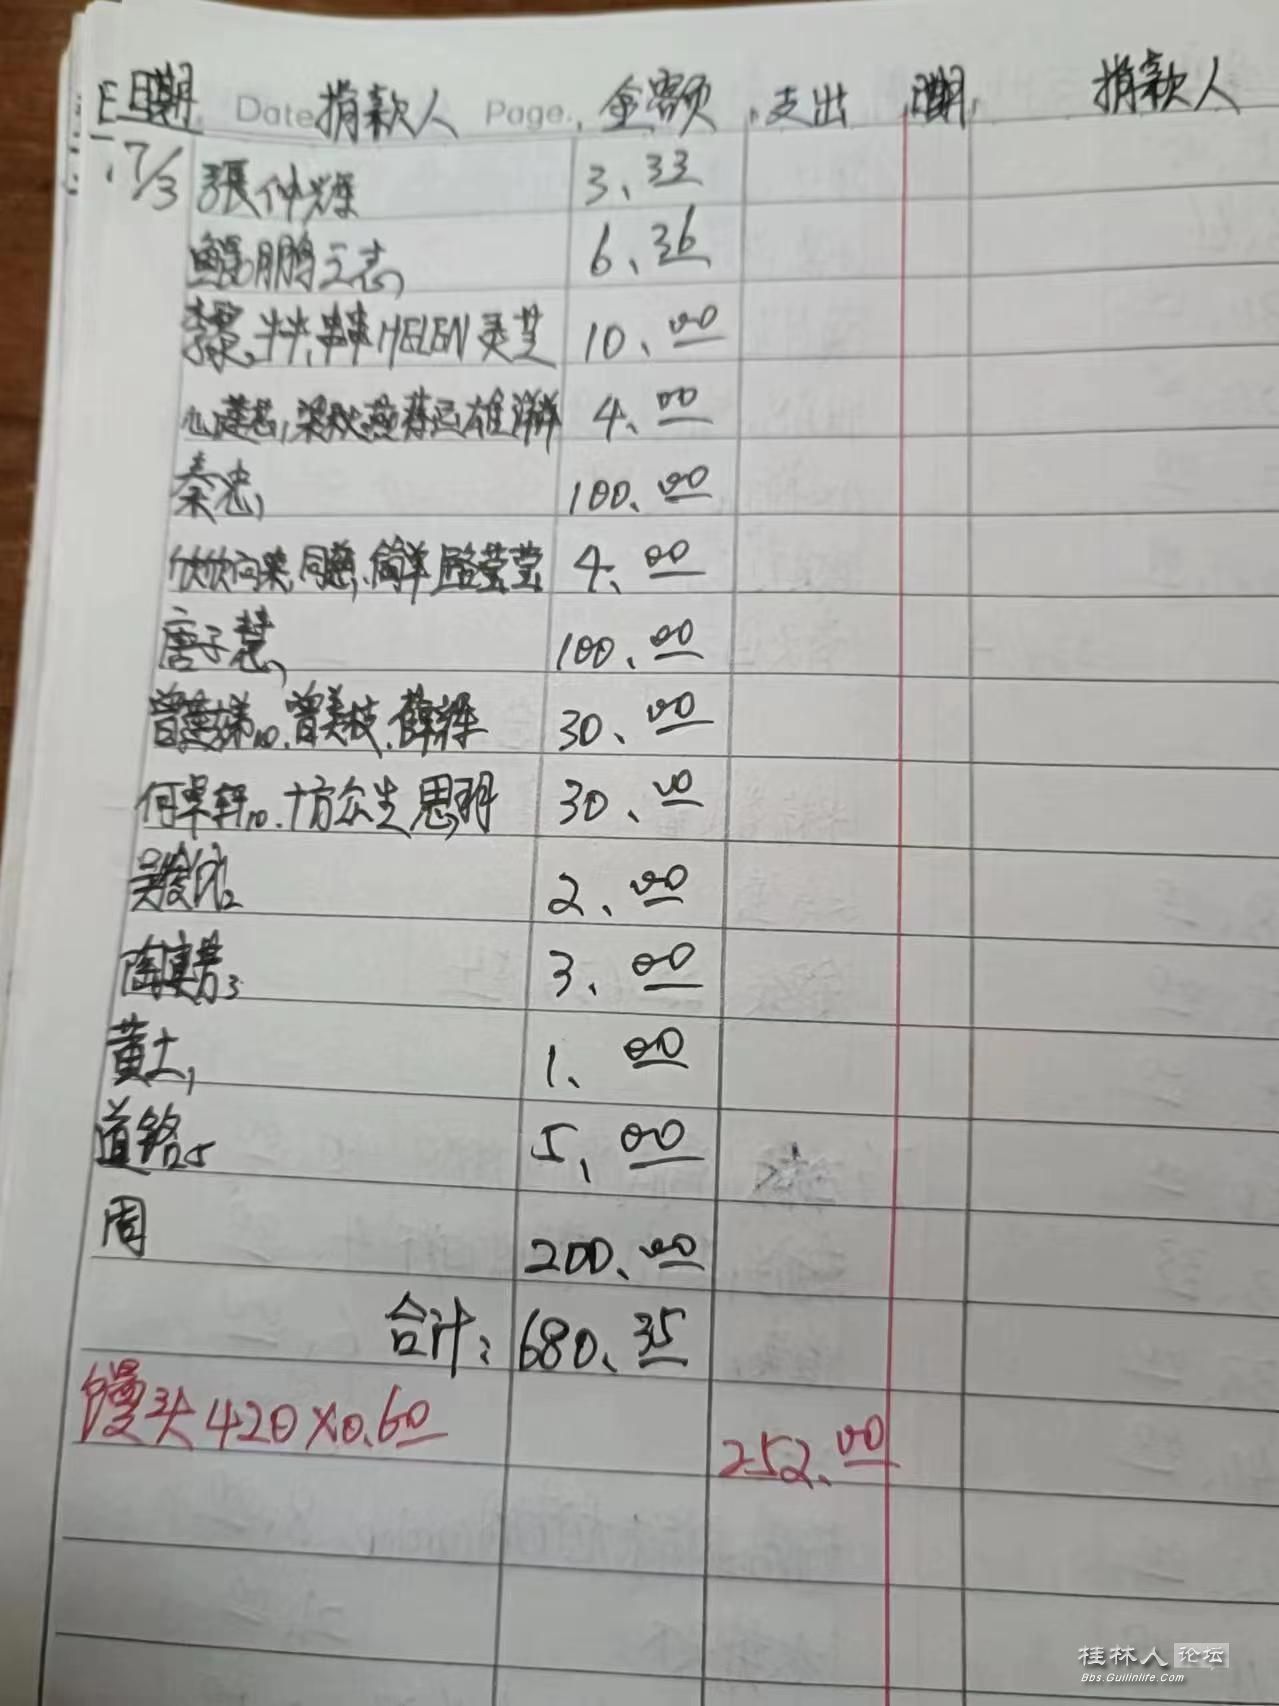 日期 Date 捐款人 Page. 金额 支出 日期 捐款人
7/3 張仲 3.33
鲲鹏之志, 6.36
HELEN 灵芝 10.00
4.00
秦忠, 100.00
欣欣向荣, 同慧, 简单, 路莹莹, 4.00
唐子慧, 100.00
曾美娣10, 曾美枝, 薛 30.00
何卓轩10, 十方众生, 思 30.00
吴俊 2 2.00
陶 芳3 3.00
黄土, 1.00
道路5 5.00
周 200.00
合计: 680.35
馒头 420×0.60 252.00
桂林人论坛
Bbs.Guilinlife.Com